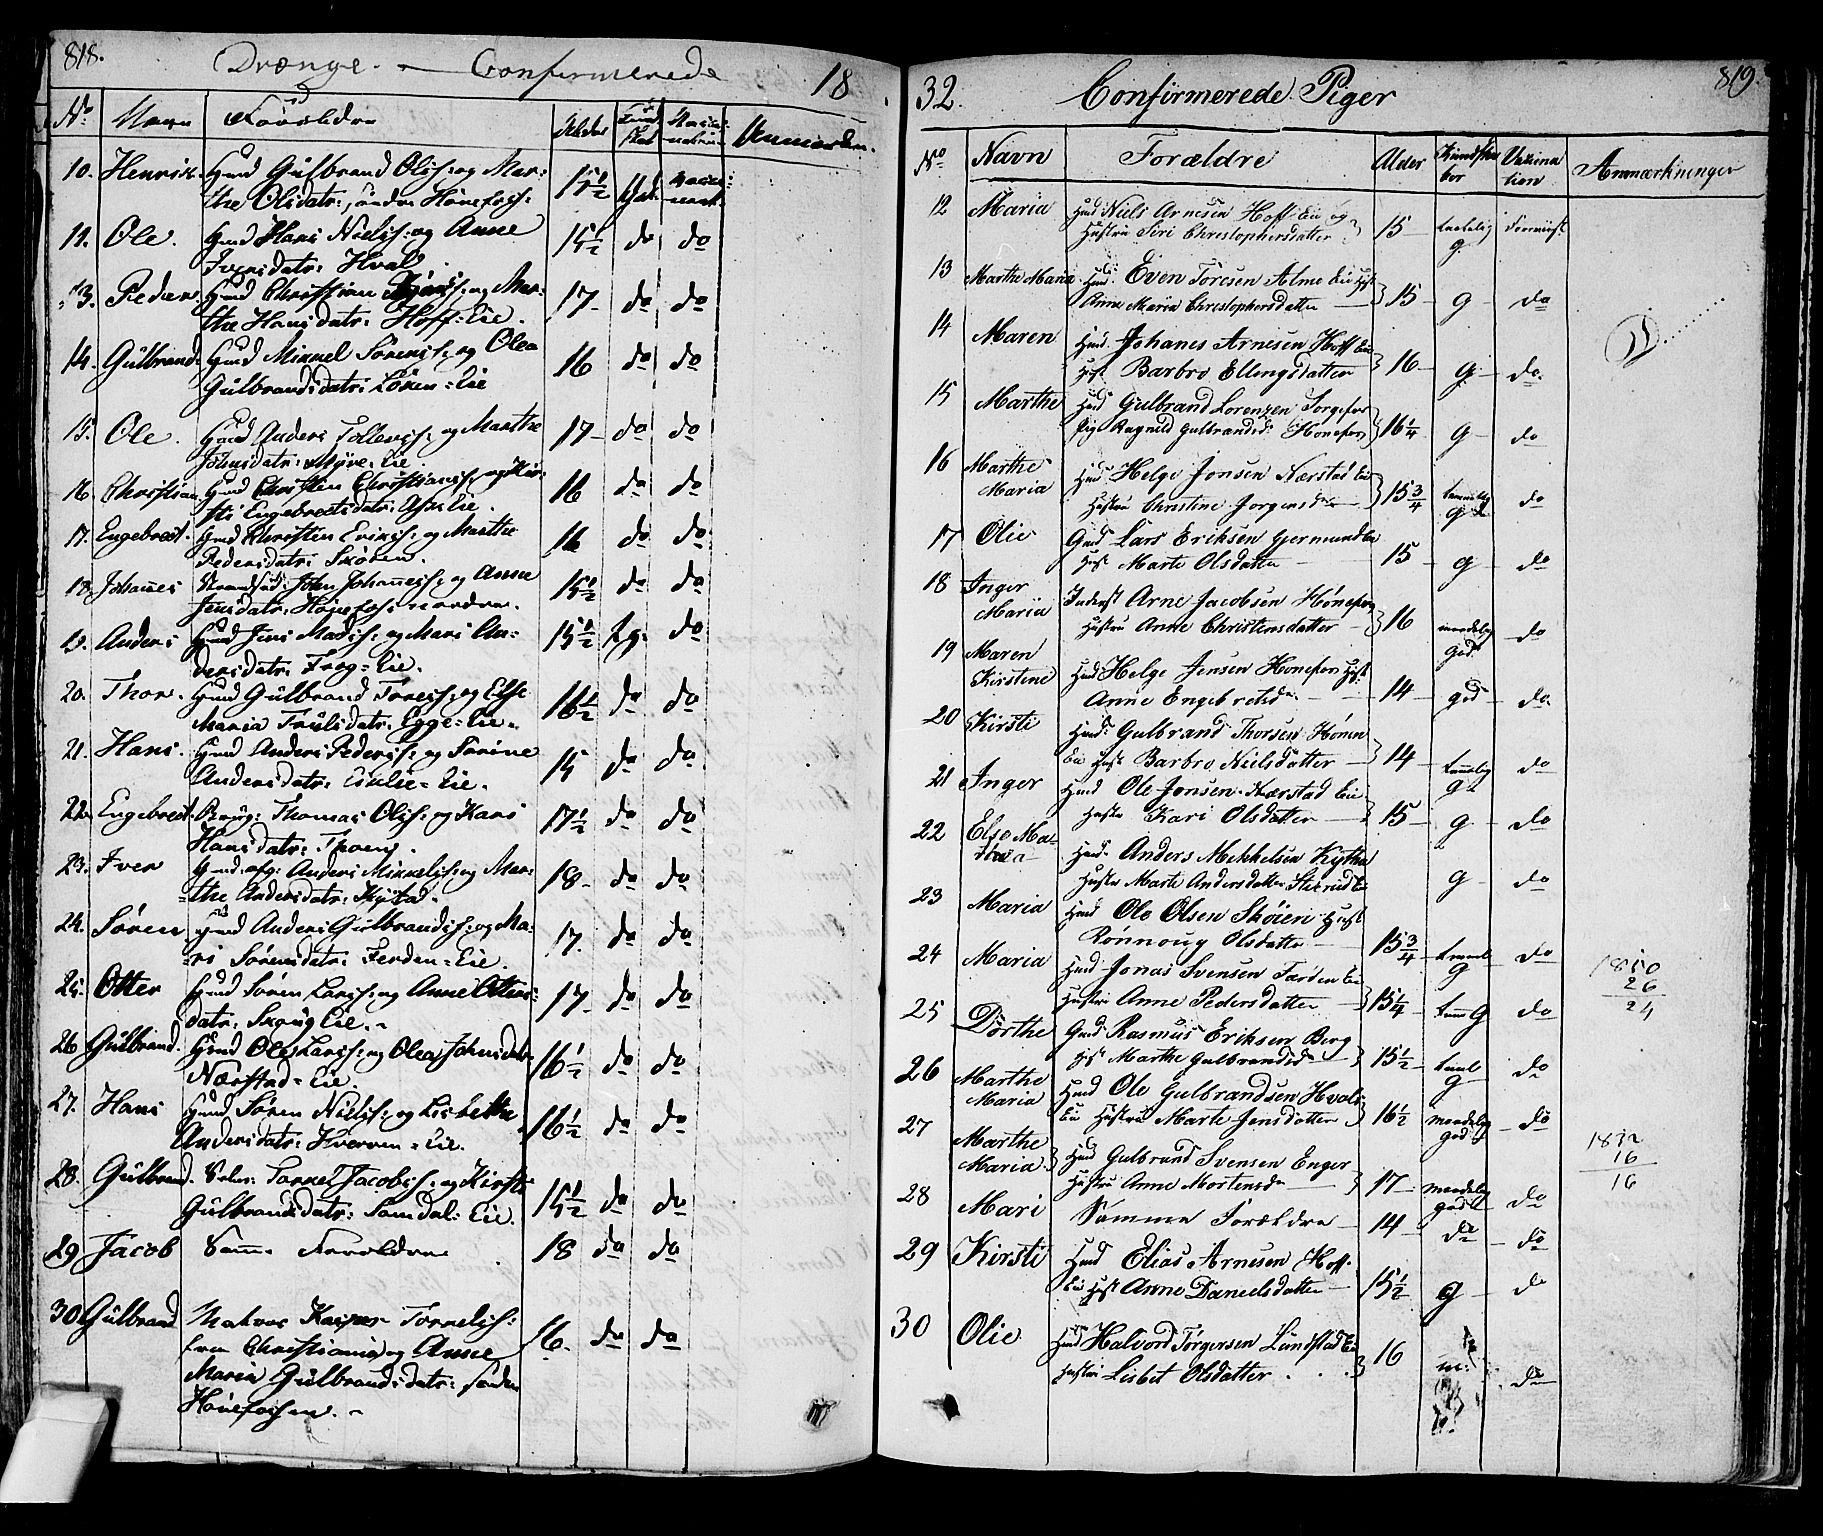 818.
Drænge. — Confirmerede 18
No Navn Forældre Alder
10. Henrik. Huusmd Gulbrand Olis: og Mar-
the Olsdatr: søndre Hønefos: 15½
11. Ole. Huusmd Hans Nielss: og Anne
Iversdatr: Hval 15½ do do
13. Peder. Huusmd Christian og Mar-
the Hansdatr: Hoff-Eie. 17- do do
14. Gulbrand. Huusmd Mikkel Sörens: og Olea
Gulbrandsdatr: Løken-Eie 16 do do
15. Ole. Huusmd Anders Tollevs: og Marthe
Johnsdatr: Myre-Eie. 17- do do
16. Christian Huusmd Christen Christians: og Kir-
sti Engebretsdatr: Ask Eie. 16 do do
17. Engebret. Huusmd Christen Eriks: og Marthe
Pedersdatr: Skoven. 16 do do
18. Johannes Strandsid: John Johanness: og Anne
Jensdatr: Hønefos: nordre. 15½ do do
19. Anders Huusmd Jens Mads: og Mari An-
dersdatr: Frog-Eie. 15½ do
20. Thor. Huusmd Gulbrand Tores: og Else
Maria Trulsdatr: Egge-Eie. 16½ do do
21. Hans. Huusmd Anders Peders: og Sørine
Andersdatr: Eie. 15 do do
22. Engebret. Brug: Thomas Ols: og Kari
Hansdatr: 17½ do do
23. Iver Anders Mikkels: og Mar-
the Andersdatr: 18- do do
24. Søren Huusmd Anders Gulbrands: og Ma-
ri Sørensdatr: Ferden-Eie. 17. do do
25. Otter Huusmd Søren Lars: og Anne Otters-
datr: Skoug Eie. 17- do do
26 Gulbrand. Huusmd Ole Lars: og Olea Johnsdatr
Nærstad-Eie. 16½ do do
27. Hans Huusmd Søren Niels: og Lisbethe
Andersdatr: Kverven-Eie. 16½ do do
28. Gulbrand. Jacobs: og Kirsti
Gulbrandsdatr: Somdal: Eie. 15½ do do
29 Jacob Samme Forældre 18 do do
30 Gulbrand Kasper Tornels:
fra Christiania og Anne
Maria Gulbrandsdatr: søndre
Hønefossen. 16. do do
32. Confirmerede Piger 819.
No Navn Forældre Alder Kundska-
ber Vaxina-
tion Anmærkninger
12 Maria Husmd Niels Arnesen Hoff Eie og
Hustru Siri Christophersdatter 15 g
13 Marthe Maria Husmd. Even Toresen Alme Eie Hust
Anne Maria Christophersdatter 15 g do
14 Maren Husmd. Johanes Arnesen Hoff Eie
Hust Barbro Ellingsdatter 16 g do.
15 Marthe Husmd Gulbrand Lorenzen
Pige Ragnild Gulbrandsd: Hønefos 16¼ g do
16 Marthe
Maria Husmd Helge Jonsen Nærstad Eie
Hustru Christine Jorgensd 15¾ g do
17 Olie Gmd Lars Eriksen Gjermund Eie
Hust Marte Olsdatter 15 g do
18 Inger
Maria Inderst Arne Jacobsen Hønefos
Hustru Anne Christensdatter 16 maadelig
god do
19 Maren
Kirstine Husmd Helge Jensen Hønefos Hust
Anne Engebretsd 14 god do.
20 Kirsti Husmd Gulbrand Thorsen Hønen
Eie Hust Barbro Nielsdatter 14 g do
21 Inger Husmd Ole Jonsen Nærstad Eie
Hustr Kari Olsdatter 15 g do
22 Else Ma-
thea Husmd Anders Mekkelsen
Hustr Marte Andersdatter g do
23 Maria Husmd Ole Olsen Skoieri Hust
Rønnoug Olsdatter 15¾ g do
24 Maria Husmd Jonas Svensen Færden Eie
Hustru Anne Pedersdatter 15¼ g do
25 Dorthe Gmd Rasmus Eriksen Berg
Hst Marthe Gulbrandsd 15½ g do
26 Marthe
Maria Husmd Ole Gulbrandsen Hvals
Eie Hustru Marte Jensdatter 16½ maadelig
god do
27 Marthe
Maria Husmd Gulbrand Svensen Enger
Hustru Anne Mortensd 17 maadelig
god do
28 Mari Samme Forældre 14 do do
29 Kirsti Husmd Elias Arnesen Hoff
Eie Hust Anne Danielsdatter 15½ g do
30 Olie Husmd Halvord Torgersen Lundstad Eie
Hustru Lisbet Olsdatter 16 do
1850
26
24
1832
16
16